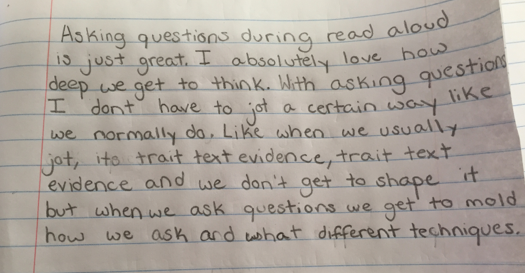 Asking questions during read aloud
is just great. I absolutely love how
deep we get to think. With asking question
I dont have to jot a certain way like
we normally do. Like when we usually
jot, its trait text evidence, trait text
evidence and we don't get to shape it
but when we ask questions we get to mold
how we ask and what different techniques.